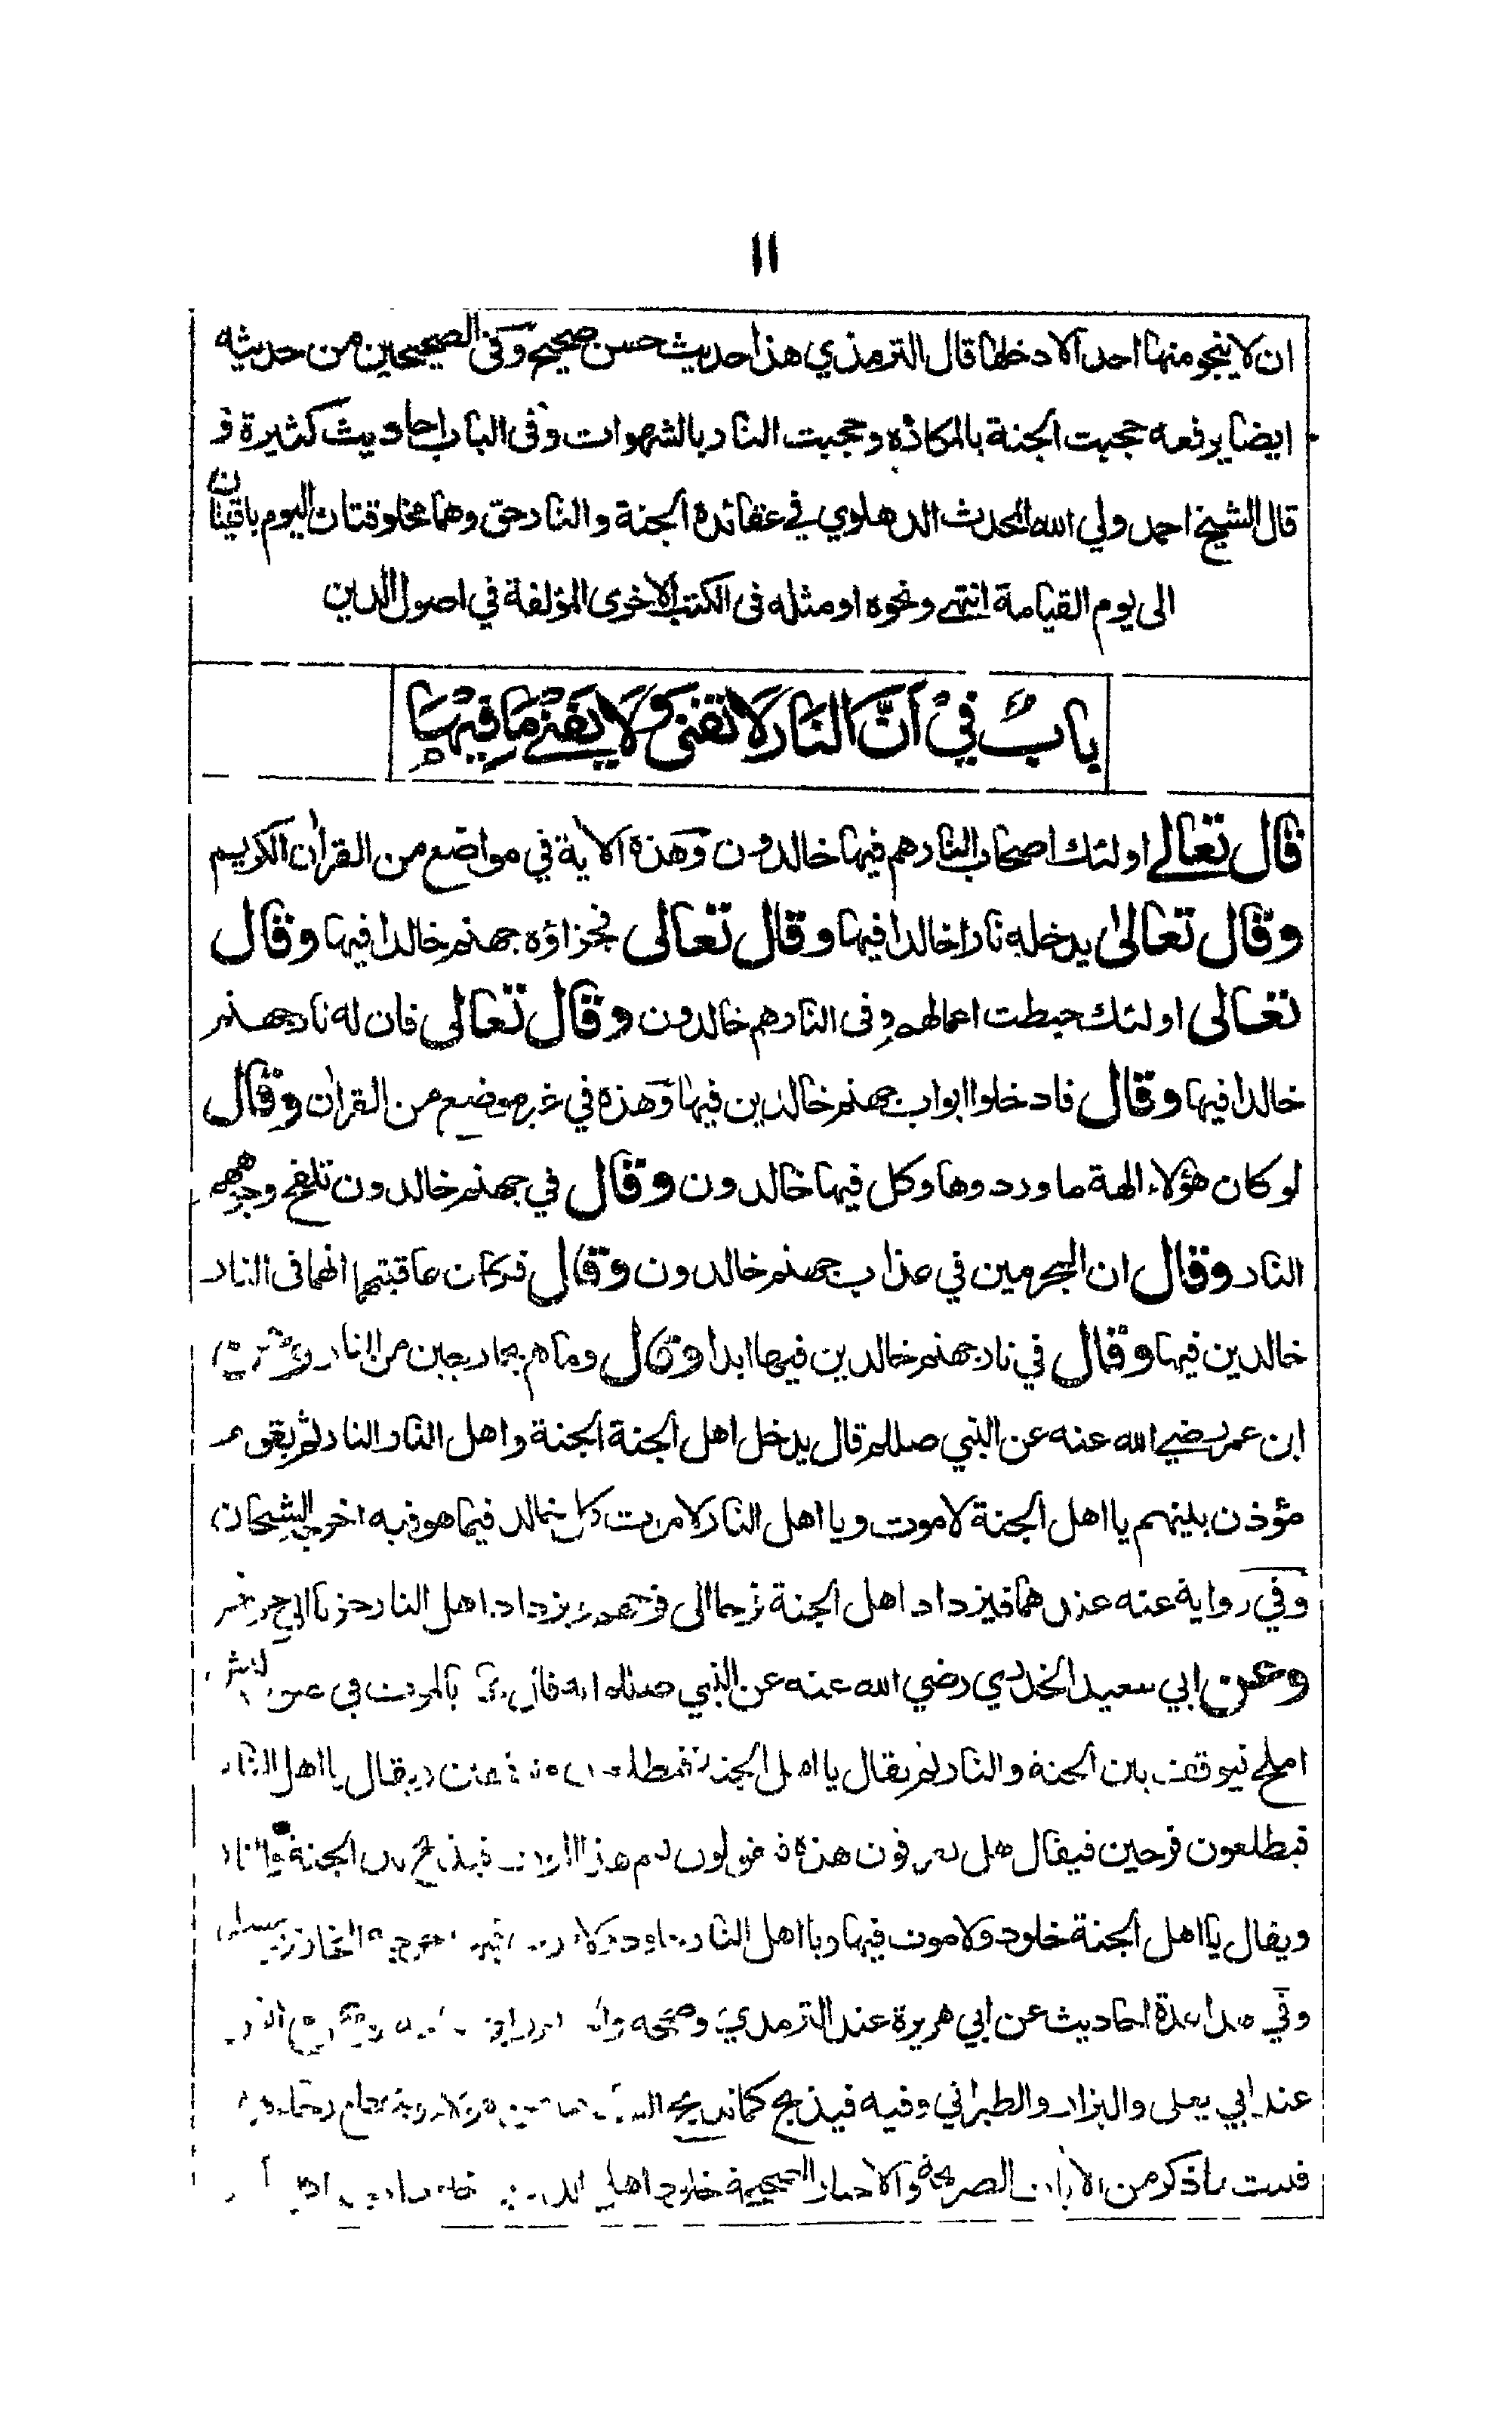 ١١
ان لا ينجو منها احد الا دخلها قال الترمذي هذا حديث حسن صحيح وفى الصحيحين من حديثه
ايضا يرفعه حجبت الجنة بالمكاره وحجبت النار بالشهوات وفى الباب احاديث كثيرة و
قال الشيخ احمد ولي الله المحدث الدهلوي في عقائده الجنة والنار حق وهما مخلوقتان اليوم باقيتان
الى يوم القيامة انتهى ونحوه او مثله فى الكتب الاخرى المؤلفة في اصول الدين
بابٌ فيْ اَنَّ النَارَ لَا تفنى وَلَا يَفْنٰے مَا فِيْهَا
قال تعالے اولئك اصحاب النار هم فيها خالدون وهذه الآية في مواضع من القرآن الكريم
وقال تعالىٰ يدخله نارا خالدا فيها وقال تعالى فجزاؤه جهنم خالدا فيها وقال
تعالى اولئك حبطت اعمالهم وفى النار هم خالدون وقال تعالى فان له نار جهنم
خالدا فيها وقال فادخلوا ابواب جهنم خالدين فيها وهذه في غير موضع من القرآن وقال
لو كان هؤلاء الهة ما وردوها وكل فيها خالدون وقال في جهنم خالدون تلفح وجوههم
النار وقال ان المجرمين في عذاب جهنم خالدون وقال فكان عاقبتهما انهما فى النار
خالدين فيها وقال في نار جهنم خالدين فيها ابدا وقال وما هم بخارجين من النار
ابن عمر رضي الله عنه عن النبي صللم قال يدخل اهل الجنة الجنة واهل النار النار ثم يقوم
مؤذن بينهم يا اهل الجنة لا موت ويا اهل النار لا موت كل خالد فيما هو فيه اخرجه الشيخان
وفي رواية عنه عندهما فيزداد اهل الجنة فرحا الى فرحهم ويزداد اهل النار حزنا الى حزنهم
وعن ابي سعيد الخدري رضي الله عنه عن النبي صللم انه قال بالموت في
املح فيوقف بين الجنة والنار ثم يقال يا اهل الجنة ويقال يا اهل النار
فيطلعون فرحين فيقال هل تعرفون هذه فيقولون نعم هذا الموت فيذبح بين الجنة والنار
ويقال يا اهل الجنة خلود ولا موت فيها ويا اهل النار
وفي هذا عدة احاديث عن ابي هريرة عند الترمذي وصححه
عند ابي يعلى والبزار والطبراني وفيه فيذبح كما تذبح
فثبت بما ذكر من الآيات الصريحة والاخبار الصحيحة خلود اهل